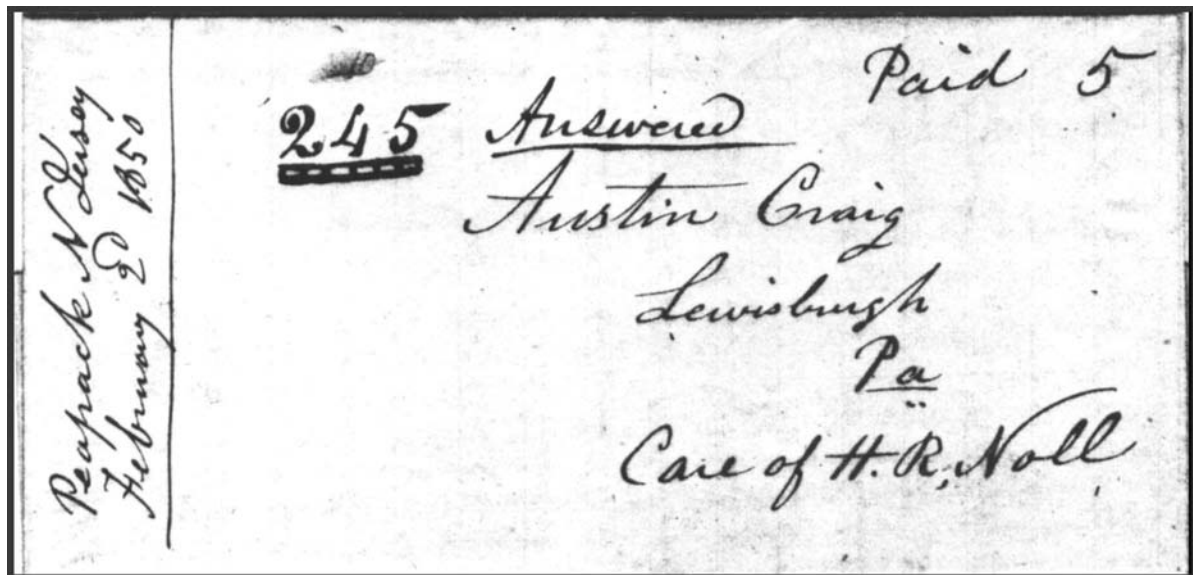 Peapack N Jersey
February 2D 1850
Paid 5
245 Answered
Austin Craig
Lewisburgh
Pa
Care of H. R. Noll